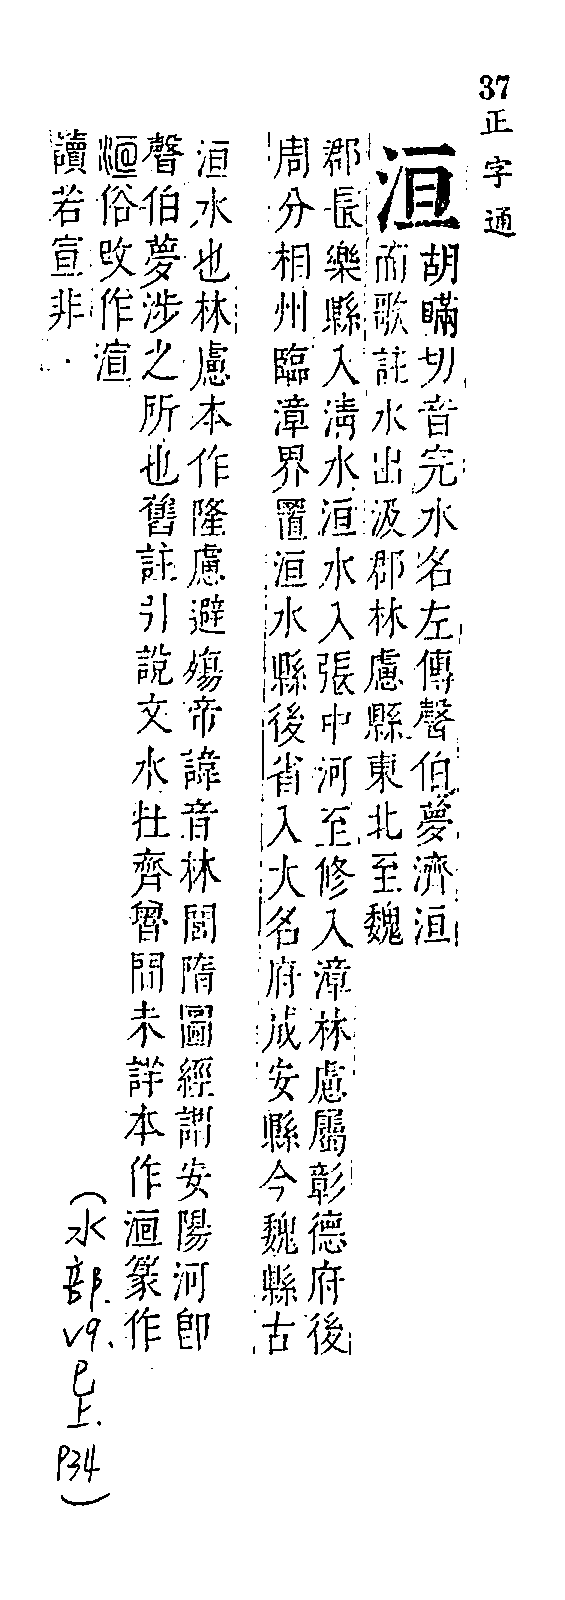 37 正字通
洹
胡瞞切音完水名左傳聲伯夢濟洹
而歌註水出汲郡林慮縣東北至魏
郡長樂縣入淸水洹水入張中河至修入漳林慮屬彰德府後
周分相州臨漳界置洹水縣後省入大名府成安縣今魏縣古
洹水也林慮本作隆慮避殤帝諱音林閭隋圖經謂安陽河卽
聲伯夢涉之所也舊註引說文水在齊魯閒未詳本作洹篆作
俗改作渲
讀若宣非
(水部.v9.巳上.P34)